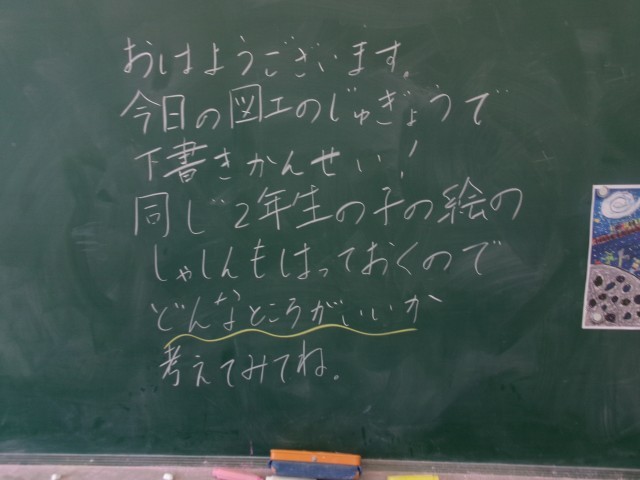 おはようございます。
今日の図工のじゅぎょうで
下書きかんせい!
同じ2年生の子の絵の
しゃしんもはっておくので
どんなところがいいか
考えてみてね。